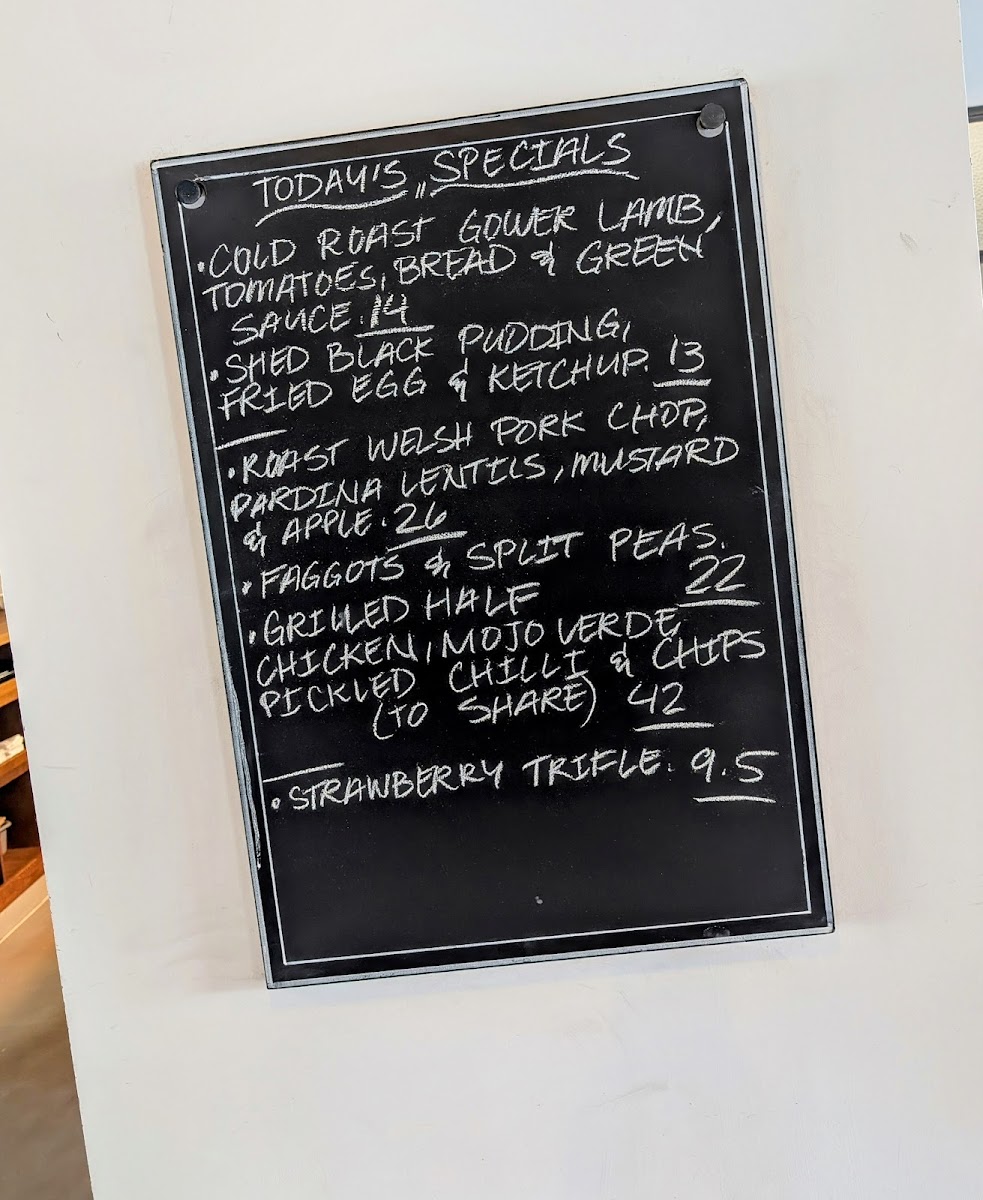 TODAY'S SPECIALS
• COLD ROAST GOWER LAMB,
TOMATOES, BREAD & GREEN
SAUCE. 14
• SHED BLACK PUDDING,
FRIED EGG & KETCHUP. 13
• ROAST WELSH PORK CHOP,
PARDINA LENTILS, MUSTARD
& APPLE. 26
• FAGGOTS & SPLIT PEAS.
22
• GRILLED HALF
CHICKEN, MOJO VERDE,
PICKLED CHILLI & CHIPS
(TO SHARE) 42
• STRAWBERRY TRIFLE. 9.5